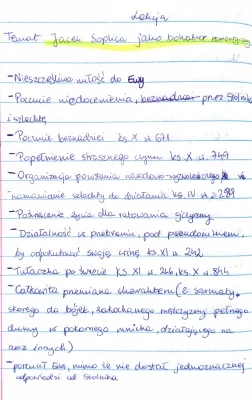 Lekcja
Temat Jacek Soplica jako bohater romantyczny
-Nieszczęśliwa miłość do Ewy
-Poczucie niedocenienia, przez Stolnika
i szlachtę
-Poczucie beznadziei ks. X w 671
-Popełnienie strasznego czynu ks. X w. 749
-Organizacja powstania narodowo-wyzwoleńczego
namawianie szlachty do działania ks. IV w
-Poświęcenie życia dla ratowania ojczyzny
-Działalność w przebraniu, pod pseudonimem,
by odpokutować swoją winę ks. XI w 242
-Tułaczka po świecie ks. XI w. 246, ks. X w 844
-Całkowita przemiana charakteru (z sarmaty,
skorego do bójek, zakochanego mężczyzny pełnego
dumy w pokornego mnicha, działającego na
rzecz innych)
-porzucił Ewę, mimo że nie dostał jednoznacznej
odpowiedzi od Stolnika